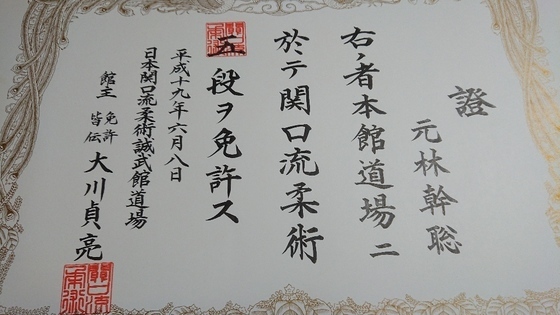 證
元林幹聡
右ノ者本館道場ニ
於テ関口流柔術
五段ヲ免許ス
平成十九年六月八日
日本関口流柔術誠武館道場
館主 免許皆伝 大川貞亮